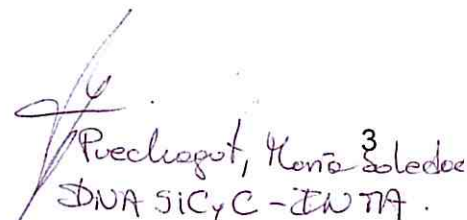 3
Puechagut, María Soledad
DNA SICyC - INTA.